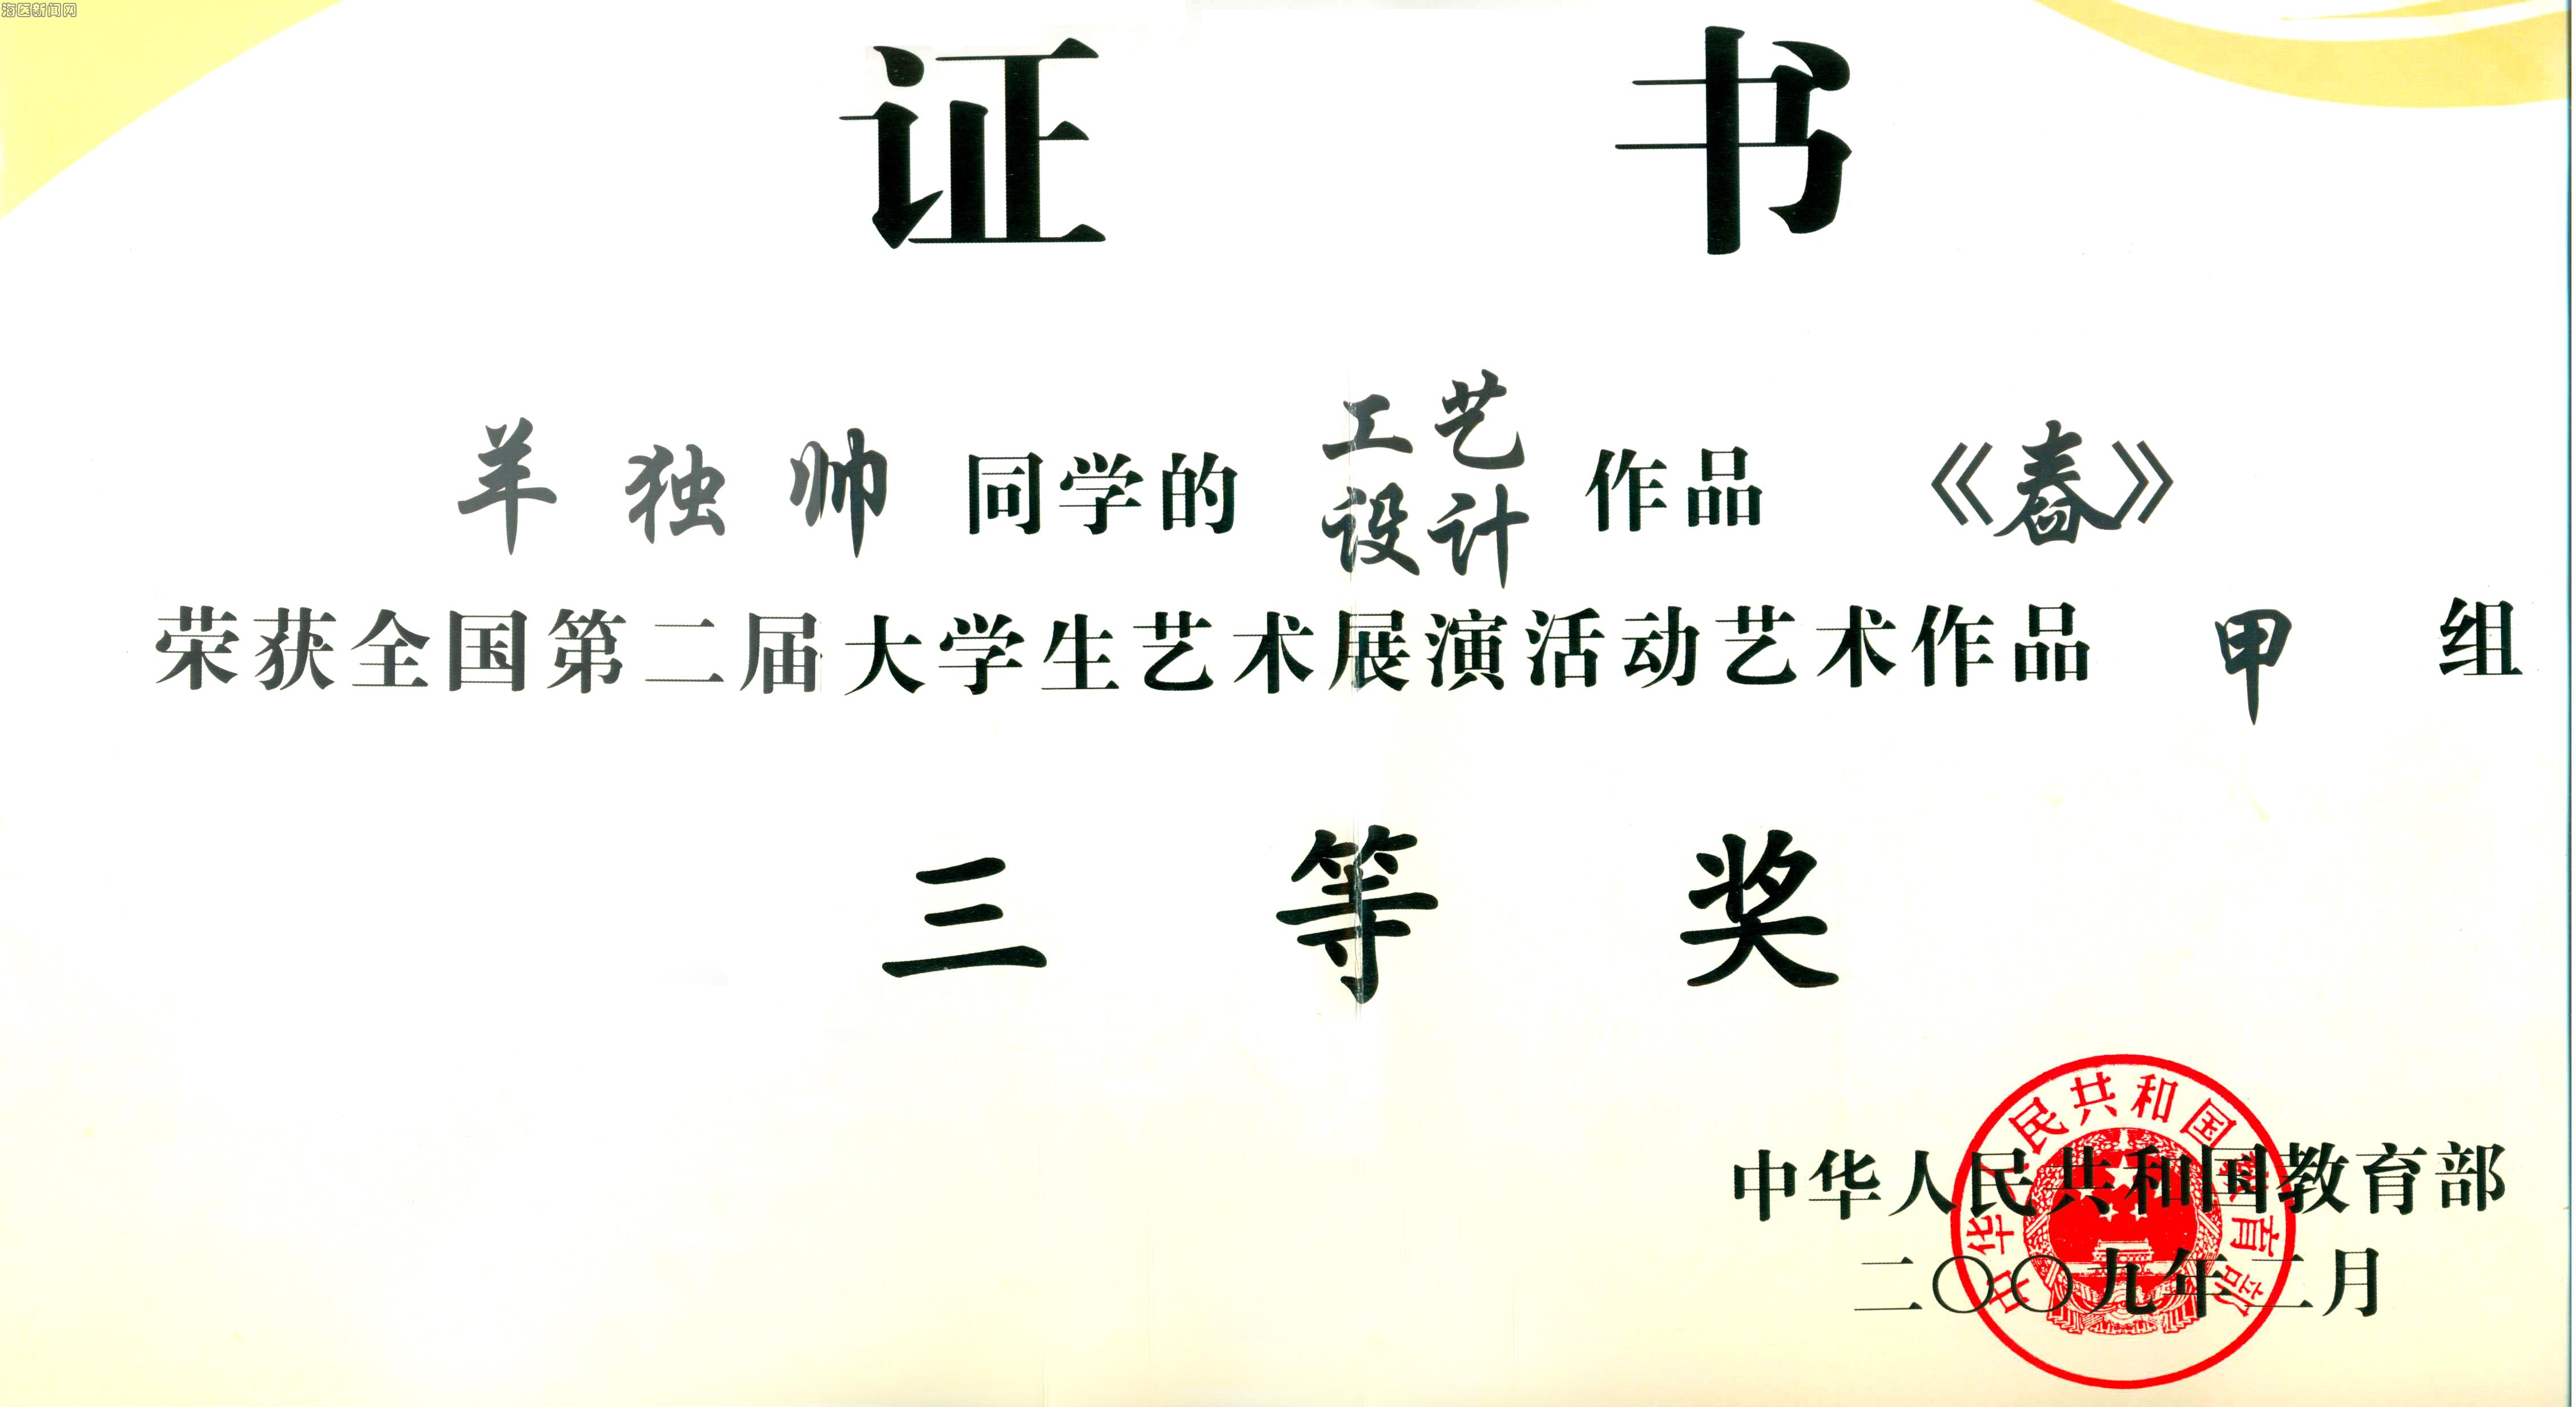 海医新闻网
证书
羊独帅同学的工艺设计作品《舂》
荣获全国第二届大学生艺术展演活动艺术作品甲组
三等奖
中华人民共和国教育部
二〇〇九年二月
中华人民共和国教育部